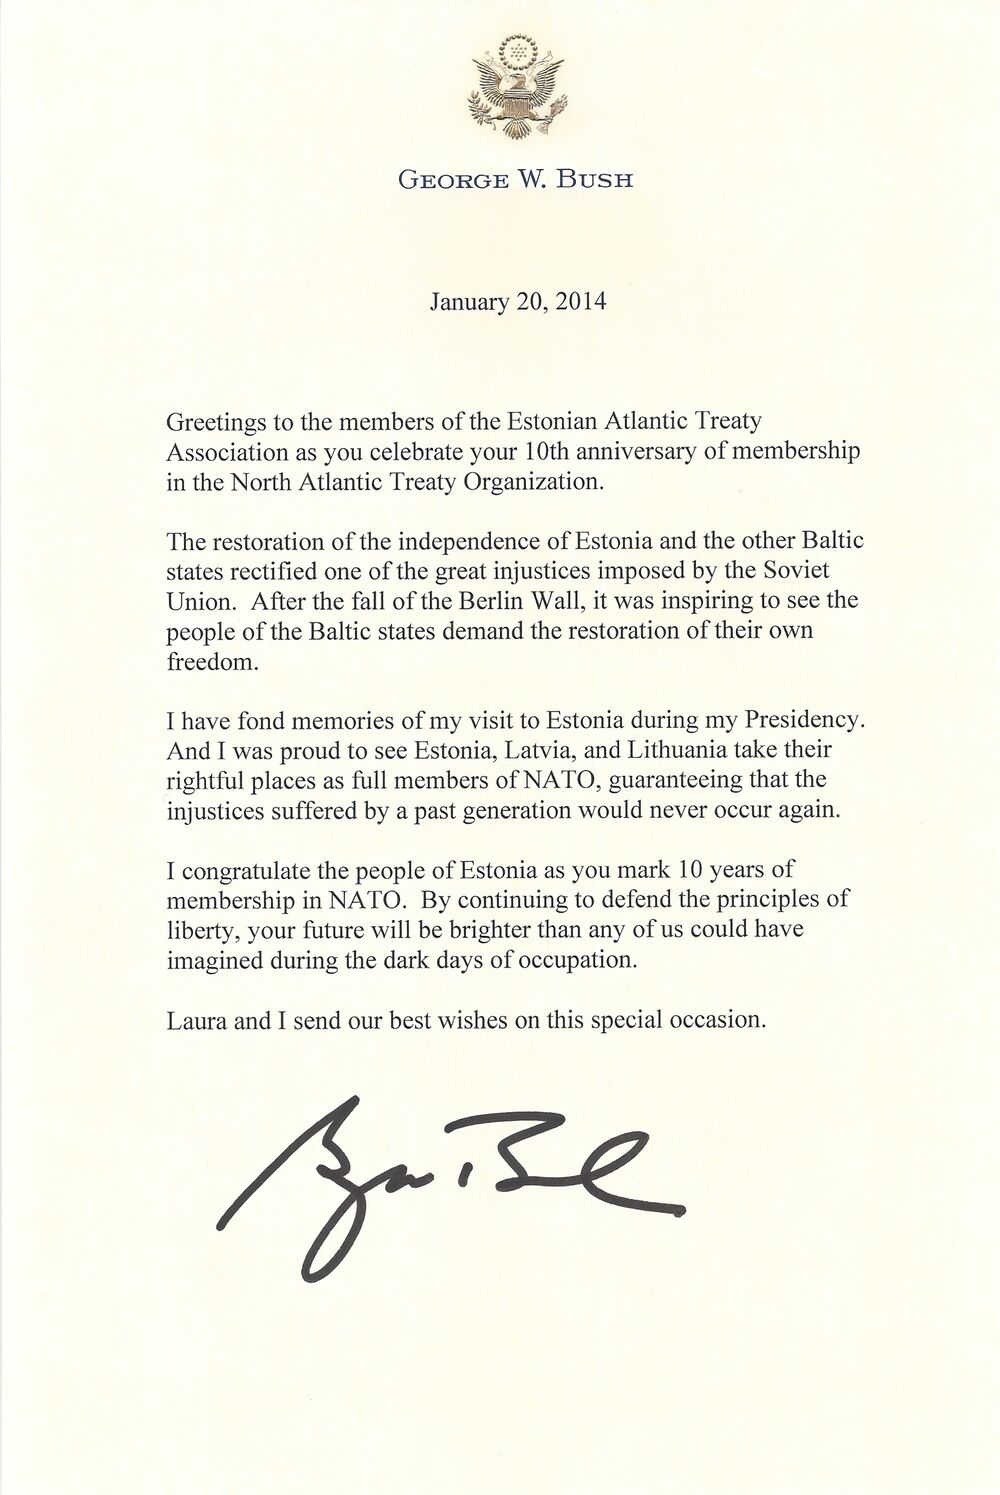 GEORGE W. BUSH
January 20, 2014
Greetings to the members of the Estonian Atlantic Treaty
Association as you celebrate your 10th anniversary of membership
in the North Atlantic Treaty Organization.
The restoration of the independence of Estonia and the other Baltic
states rectified one of the great injustices imposed by the Soviet
Union.  After the fall of the Berlin Wall, it was inspiring to see the
people of the Baltic states demand the restoration of their own
freedom.
I have fond memories of my visit to Estonia during my Presidency.
And I was proud to see Estonia, Latvia, and Lithuania take their
rightful places as full members of NATO, guaranteeing that the
injustices suffered by a past generation would never occur again.
I congratulate the people of Estonia as you mark 10 years of
membership in NATO.  By continuing to defend the principles of
liberty, your future will be brighter than any of us could have
imagined during the dark days of occupation.
Laura and I send our best wishes on this special occasion.